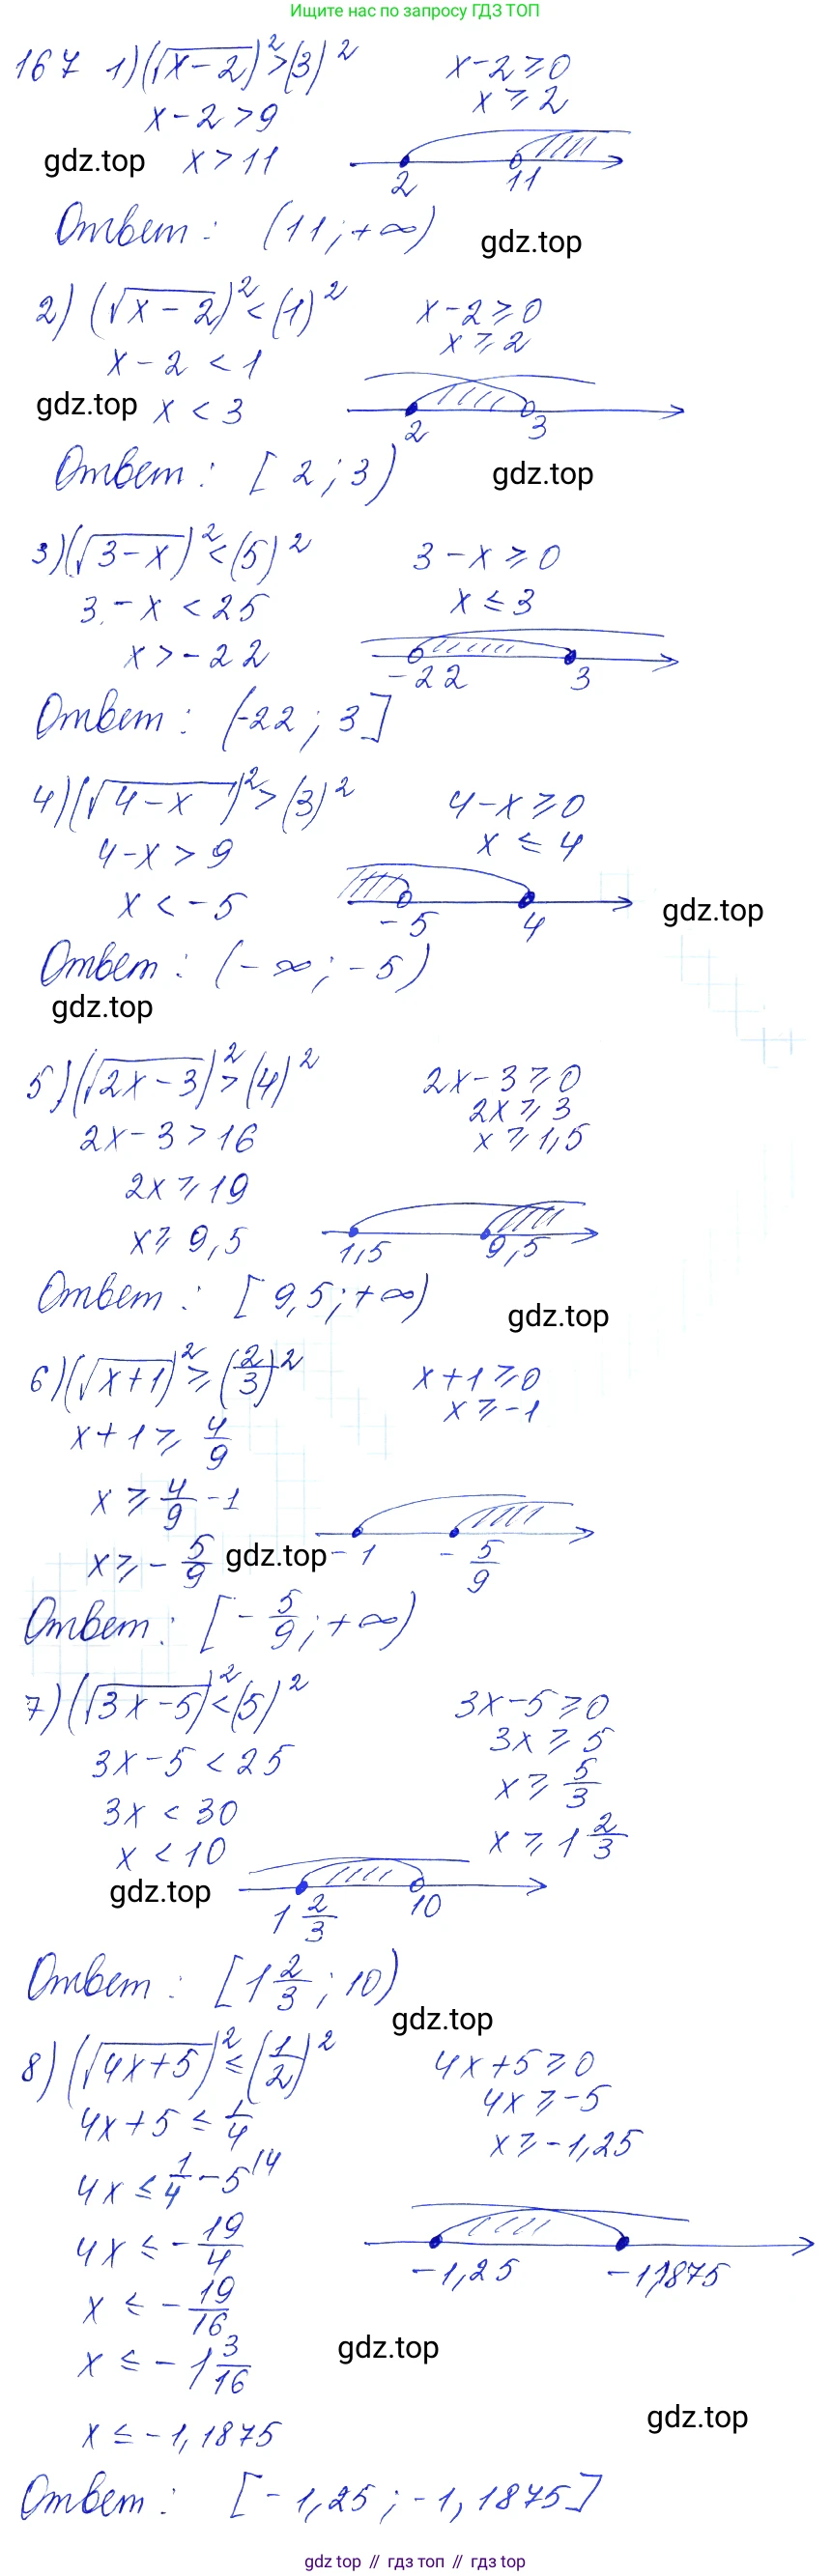 Ищите нас по запросу ГДЗ ТОП
167 1) (√(x-2))² > (3)² x-2 ≥ 0
x-2 > 9 x ≥ 2
gdz.top x > 11
2 11
Ответ: (11; +∞) gdz.top
2) (√(x-2))² < (1)² x-2 ≥ 0
x-2 < 1 x ≥ 2
gdz.top x < 3
2 3
Ответ: [2; 3) gdz.top
3) (√(3-x))² < (5)² 3-x ≥ 0
3-x < 25 x ≤ 3
x > -22
-22 3
Ответ: (-22; 3]
4) (√(4-x))² > (3)² 4-x ≥ 0
4-x > 9 x ≤ 4
x < -5 gdz.top
-5 4
Ответ: (-∞; -5)
gdz.top
5) (√(2x-3))² > (4)² 2x-3 ≥ 0
2x ≥ 3
2x-3 > 16 x ≥ 1,5
2x ≥ 19
x ≥ 9,5 1,5 9,5
Ответ: [9,5; +∞) gdz.top
6) (√(x+1))² ≥ (2/3)² x+1 ≥ 0
x+1 ≥ 4/9 x ≥ -1
x ≥ 4/9 - 1
x ≥ -5/9 gdz.top -1 -5/9
Ответ: [-5/9; +∞)
7) (√(3x-5))² < (5)² 3x-5 ≥ 0
3x ≥ 5
3x-5 < 25 x ≥ 5/3
3x < 30
x < 10 x ≥ 1 2/3
gdz.top 1 2/3 10
Ответ: [1 2/3; 10)
gdz.top
8) (√(4x+5))² ≤ (1/2)² 4x+5 ≥ 0
4x+5 ≤ 1/4 4x ≥ -5
4x ≤ 1/4 - 5 /4 x ≥ -1,25
4x ≤ -19/4 -1,25 -1,1875
x ≤ -19/16
x ≤ -1 3/16 gdz.top
gdz.top
x ≤ -1,1875
Ответ: [-1,25; -1,1875]
gdz.top // гдз топ // гдз.top